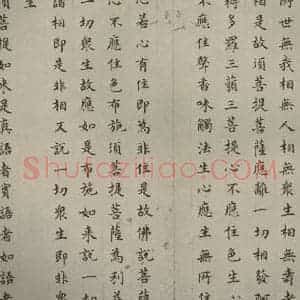 所世無我相無人相無眾生相無壽者
相是故須菩提菩薩應離一切相發阿
耨多羅三藐三菩提心不應住色生心
不應住聲香味觸法生心應生無所住
心若心有住即為非住是故佛說菩薩
心不應住色布施須菩提菩薩為利益
一切眾生故應如是布施如來說一切
諸相即是非相又說一切眾生即非眾
生
須菩提如來是真語者實語者如語者
Shufaziliao.COM